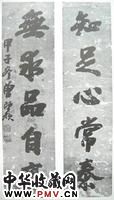 知足心常泰
無求品自高
甲子冬
中华收藏网
WWW.PMV.CN